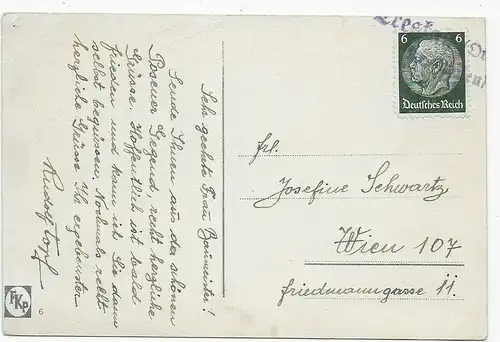 Sehr geehrte Frau Baumeister!
Sende Ihnen aus der schönen
Posener Gegend, recht herzliche
Grüsse. Hoffentlich ist bald
frieden und kann ich Sie dann
selbst begrüssen. Nochmals recht
herzliche Grüsse Ihr ergebenster
Rudolf Topf
6
6
Deutsches Reich
Frl.
Josefine Schwartz
Wien 107
Friedmanngasse 11.
FKP
6